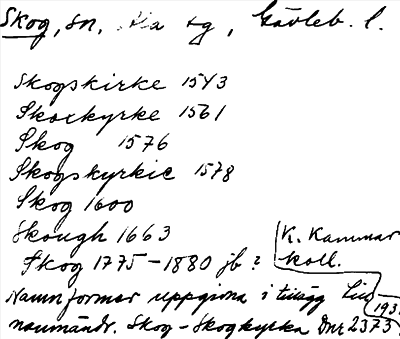 Skog, sn, sg, Gävleb. l.
Skogskirke 1543
Skockyrke 1561
Skog 1576
Skogskyrkie 1578
Skog 1600
Skough 1663
K. Kammar
Skog 1775-1880 jb?
koll.
Namnformer uppgivna i tillägg
193
namnändr. Skog-Skogkyrka Dnr 2373